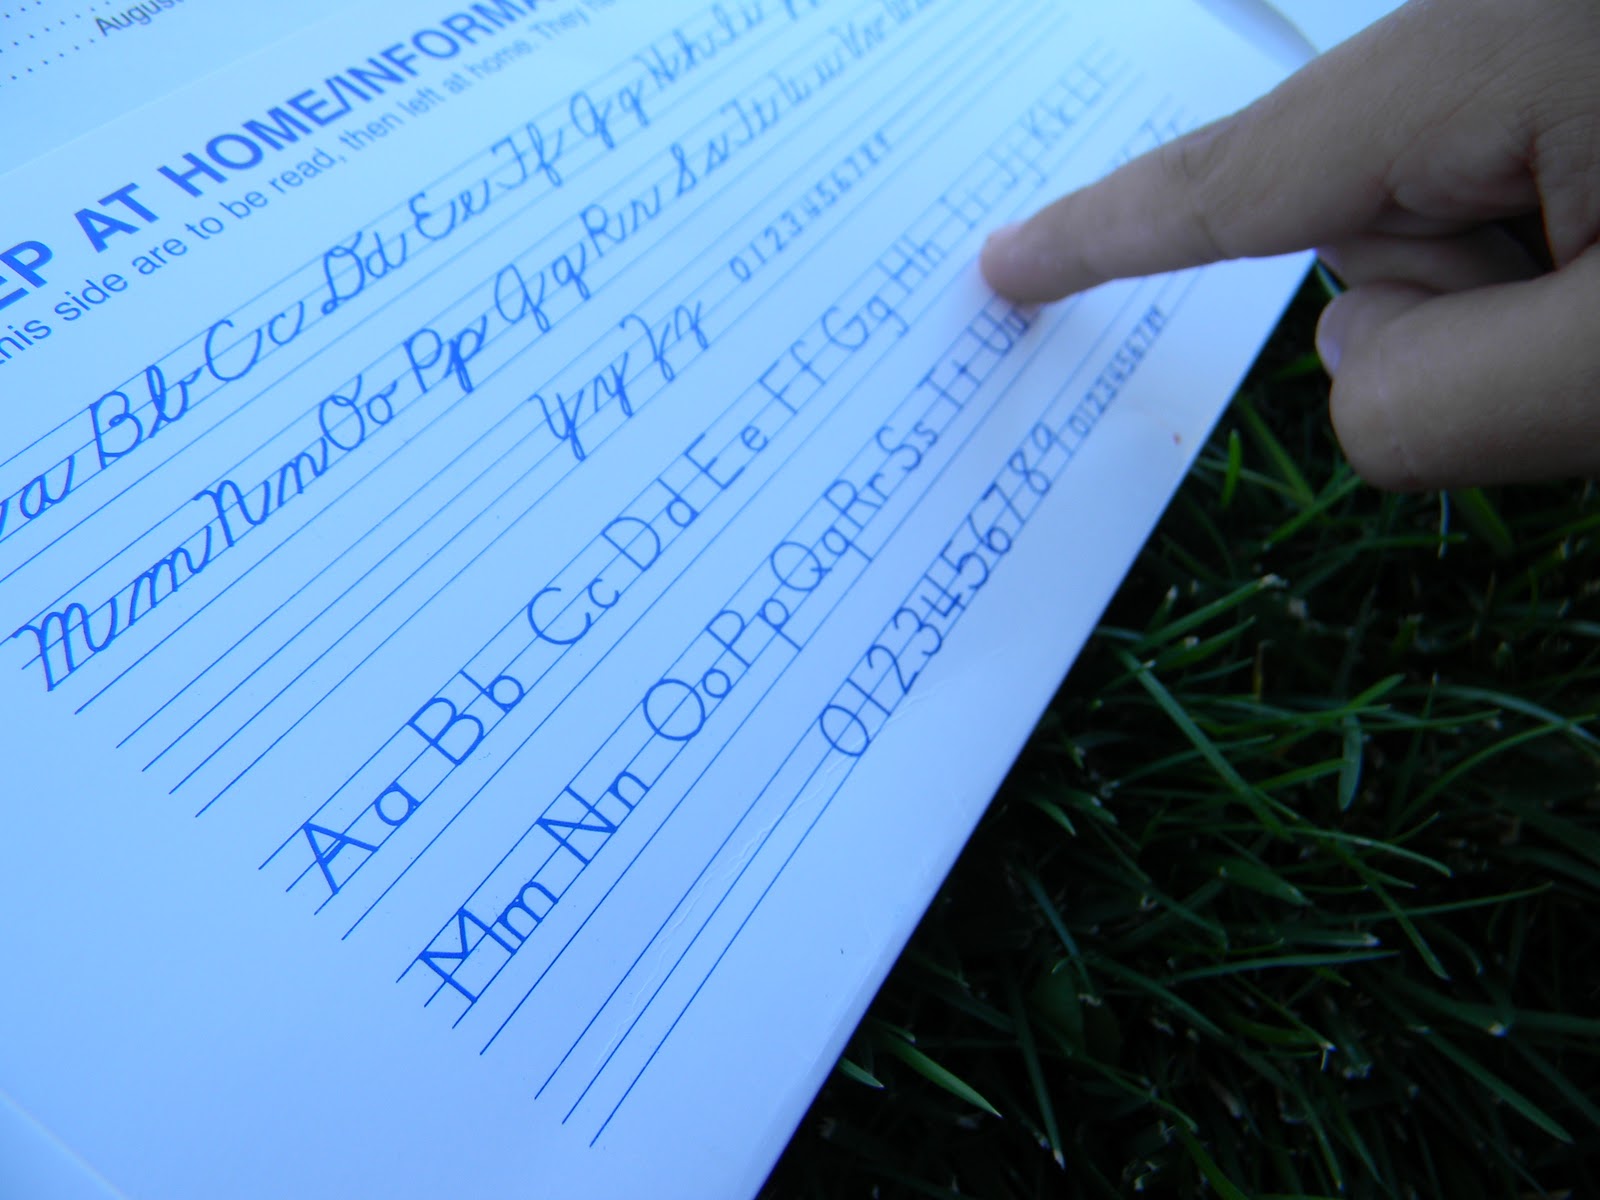 August
EP AT HOME/INFORMA
this side are to be read, then left at home. They
a Bb Cc Dd Ee Ff Gg Hh Ii
Mm Nn Oo Pp Qq Rr Ss Tt Uu Vv
Yy Zz 0123456789
Aa Bb Cc Dd Ee Ff Gg Hh Ii Jj Kk
Mm Nn Oo Pp Qq Rr Ss Tt Uu
0123456789 0123456789